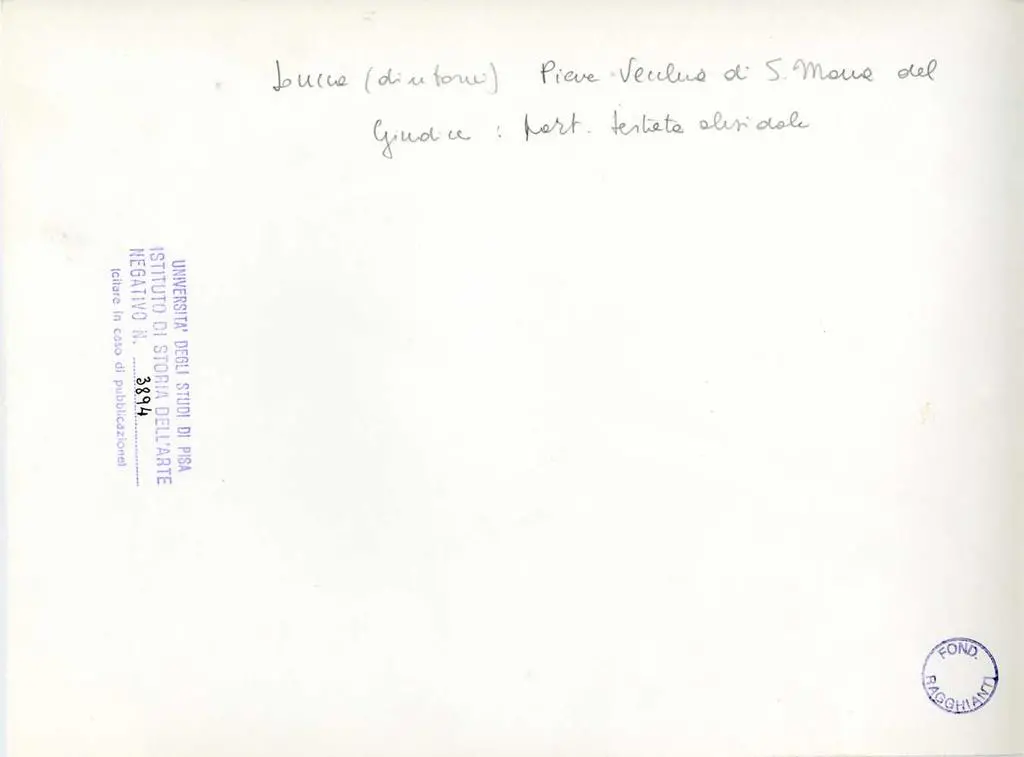 Lucca (dintorni) Pieve Vecchia di S. Maria del
Giudice : part. testata absidale
UNIVERSITA' DEGLI STUDI DI PISA
ISTITUTO DI STORIA DELL'ARTE
NEGATIVO N. 3894
(citare in caso di pubblicazione)
FOND.
RAGGHIANTI